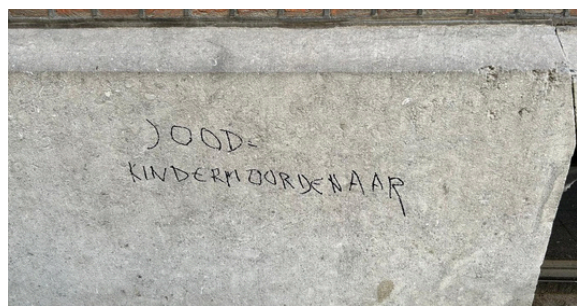 JOOD=
KINDERMOORDENAAR